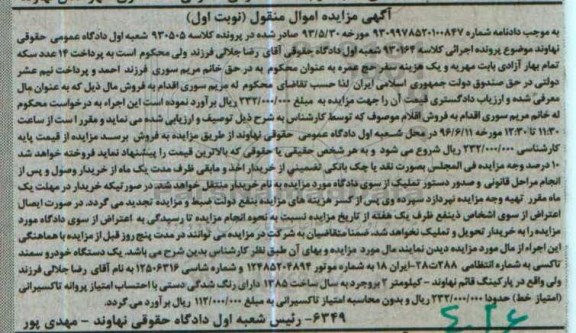 آگهی مزایده اموال منقول (نوبت اول)
به موجب دادنامه شماره ۹۳۰۹۹۷۸۵۲۰۱۰۰۸۴۷ مورخه ۹۳/۵/۳۰ صادر شده در پرونده کلاسه ۹۳۰۵۰۵ شعبه اول دادگاه عمومی حقوقی
نهاوند موضوع پرونده اجرائی کلاسه ۹۳۰۱۶۴ شعبه اول دادگاه حقوقی آقای رضا جلالی فرزند ولی محکوم است به پرداخت ۱۴ عدد سکه
تمام بهار آزادی بابت مهریه و یک هزینه سفر حج عمره به عنوان محکوم به در حق خانم مریم سوری فرزند احمد و پرداخت نیم عشر
دولتی در حق صندوق دولت جمهوری اسلامی ایران لذا حسب تقاضای محکوم له مریم سوری اقدام به فروش مال ذیل که به عنوان مال
معرفی شده و ارزیاب دادگستری قیمت آن را جهت مزایده به مبلغ ۲۳۲/۰۰۰/۰۰۰ ریال برآورد نموده است این اجراء به درخواست محکوم
له خانم مریم سوری اقدام به فروش اقلام موصوف که توسط کارشناس به شرح ذیل توصیف و ارزیابی شده می نماید و مقرر است از ساعت
۱۱:۳۰ تا ۱۲:۳۰ مورخه ۹۶/۶/۱۱ در محل شعبه اول دادگاه عمومی حقوقی نهاوند از طریق مزایده به فروش برسد مزایده از قیمت پایه
کارشناسی ۲۳۲/۰۰۰/۰۰۰ ریال شروع می شود و به هر شخص حقیقی یا حقوقی که بالاترین قیمت را پیشنهاد نماید فروخته خواهد شد
۱۰ درصد وجه مزایده فی المجلس بصورت نقد یا چک بانکی تضمینی از خریدار اخذ و مابقی ظرف مدت یک ماه از خریدار وصول و پس از
انجام مراحل قانونی و صدور دستور تملیک از سوی دادگاه مورد مزایده به نام خریدار منتقل خواهد شد. در صورتیکه خریدار در مهلت یک
ماه مقرر تهیه وجه مزایده نپردازد سپرده وی پس از کسر هزینه های مزایده بنفع دولت ضبط و مزایده تجدید می گردد. در صورت ایصال
اعتراض از سوی اشخاص ذینفع ظرف یک هفته از تاریخ مزایده نسبت به نحوه انجام مزایده تا رسیدگی به اعتراض از سوی دادگاه مورد
مزایده را به خریدار تحویل و تملیک نخواهد شد. ضمنا متقاضیان به شرکت در مزایده می توانند در مدت پنج روز قبل از مزایده با هماهنگی
این اجراء از مال مورد مزایده دیدن نمایند مال مورد مزایده و بهای آن طبق نظر کارشناس بدین شرح می باشد. یک دستگاه خودرو سمند
تاکسی به شماره انتظامی ۲۸۸ت۲۸-ایران ۱۸ به شماره موتور ۱۲۴۸۵۲۰۴۸۹۴ و شماره شاسی ۱۲۵۰۶۳۱۶ به نام آقای رضا جلالی فرزند
ولی واقع در پارکینگ قائم نهاوند - کیلومتر ۲ بروجرد به سال ساخت ۱۳۸۵ دارای رنگ شدگی دستی با احتساب امتیاز پروانه تاکسیرانی
(امتیاز خط) حدودا ۲۳۲/۰۰۰/۰۰۰ ریال و بدون محاسبه امتیاز تاکسیرانی به مبلغ ۱۱۲/۰۰۰/۰۰۰ ریال برآورد می گردد.
۶۳۴۹- رئیس شعبه اول دادگاه حقوقی نهاوند - مهدی پور